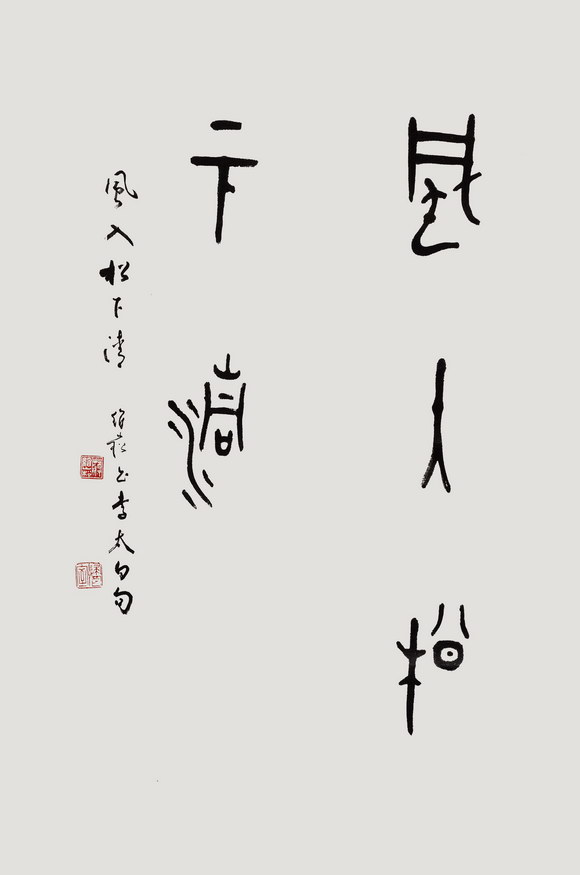 風入松
下清
風入松下清 書李太白句